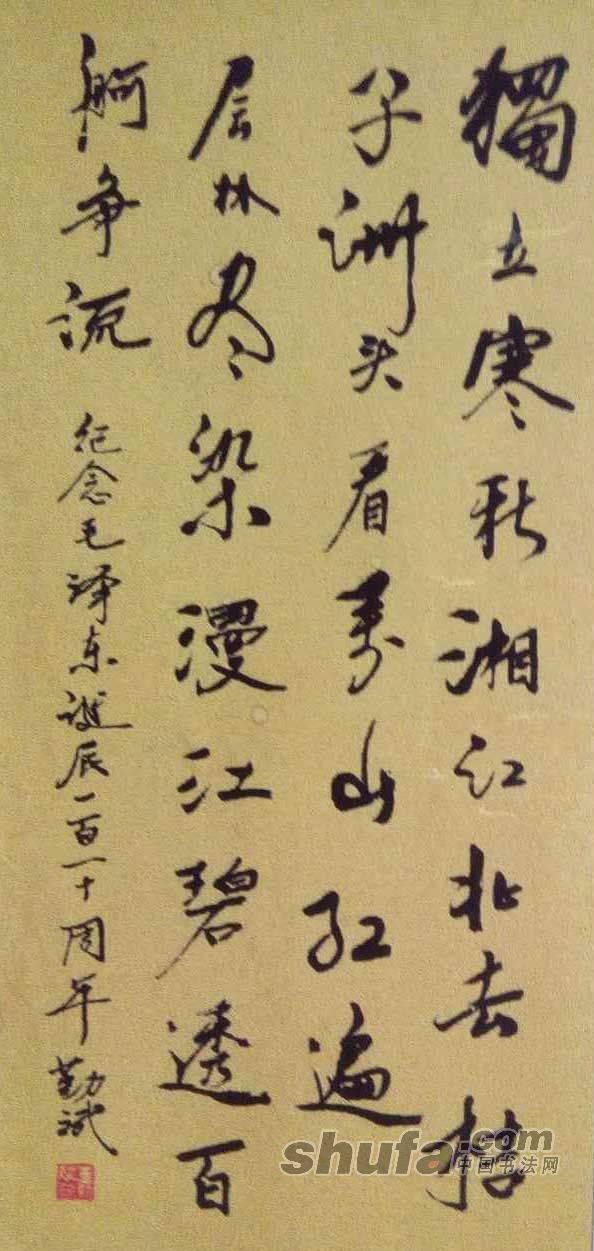 獨立寒秋湘江北去橘
子洲头看萬山红遍
层林尽染漫江碧透百
舸争流
纪念毛泽东诞辰一百一十周年 勤斌
shufa.com
中国书法网